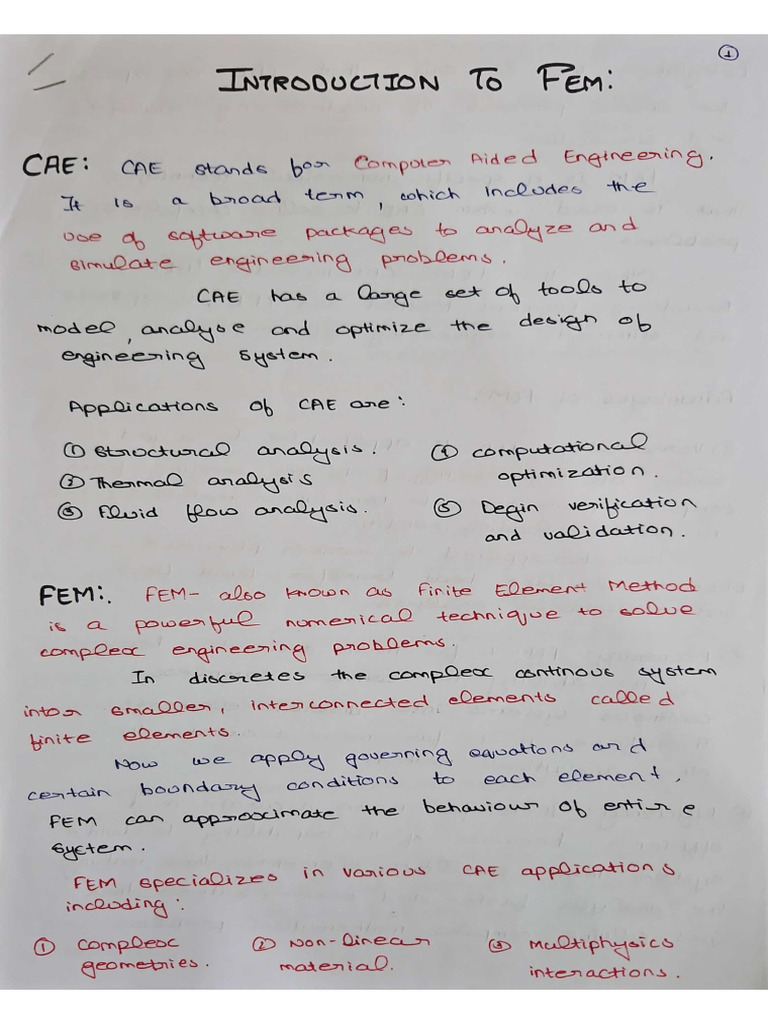 1
INTRODUCTION TO FEM:
CAE: CAE stands for Computer Aided Engineering.
It is a broad term, which includes the
use of software packages to analyze and
simulate engineering problems.
CAE has a large set of tools to
model, analyse and optimize the design of
engineering system.
Applications of CAE are:
① Structural analysis.
② Thermal analysis
③ Fluid flow analysis.
④ computational
optimization.
⑤ Degin verification
and validation.
FEM:. FEM- also known as Finite Element Method
is a powerful numerical technique to solve
complex engineering problems.
In discretes the complex continous system
intor smaller, interconnected elements called
finite elements.
Now we apply governing equations and
certain boundary conditions to each element,
FEM can approximate the behaviour of entire
system.
FEM specializes in various CAE applications
including:
① Complex
geometries.
② Non-linear
material.
③ Multiphysics
interactions.